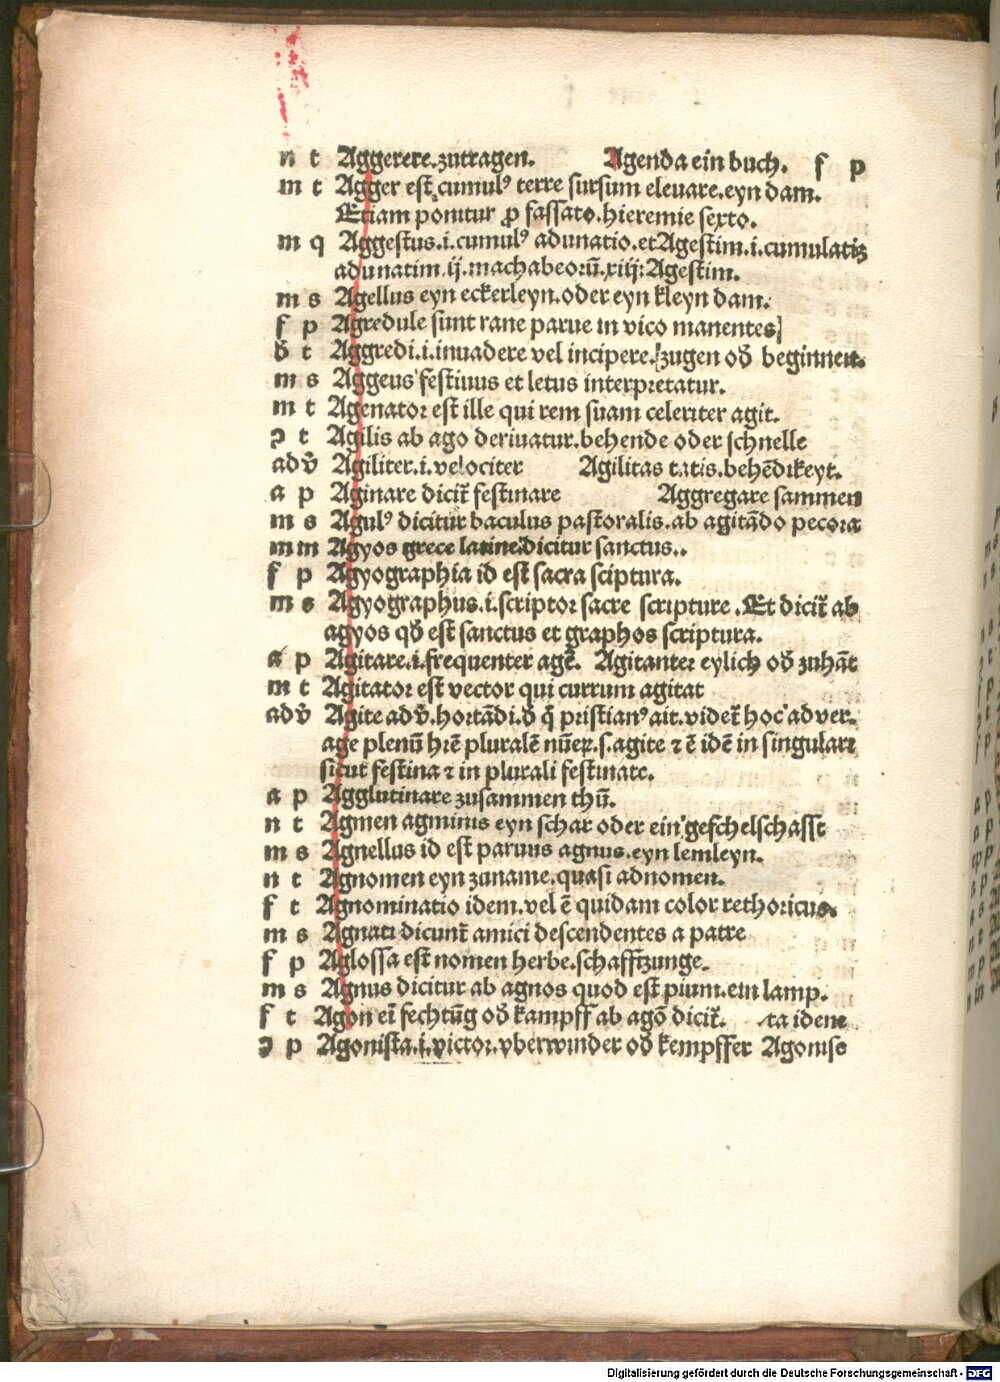 n t Aggerere.zutragen. Agenda ein buch. f p
m t Agger est cumulꝰ terre sursum eleuare.eyn dam.
Etiam ponitur ꝓ fassato.hieremie sexto.
m q Aggestus.i.cumulꝰ adunatio.et Agestim.i.cumulatiꝫ
adunatim.ij.machabeoꝛū.xiij:Agestim.
m s Agellus eyn eckerleyn.oder eyn kleyn dam.
f p Agredule sunt rane parue in vico manentes
ð t Aggredi.i.inuadere vel incipere.zugen oð beginnen.
m s Aggeus festiuus et letus interpꝛetatur.
m t Agenatoꝛ est ille qui rem suam celeriter agit.
ꝯ t Agilis ab ago deriuatur.behende oder schnelle
adv̄ Agiliter.i.velociter Agilitas tatis.behēdikeyt.
a p Aginare dicit̄ festinare Aggregare sammen
m s Agulꝰ dicitur baculus pastoralis.ab agitādo pecoꝛa
m m Agyos grece latine dicitur sanctus..
f p Agyographia id est sacra sciptura.
m s Agyographus.i.scriptoꝛ sacre scripture.Et dicit̄ ab
agyos qð est sanctus et graphos scriptura.
a p Agitare.i.frequenter agē. Agitanter eylich oð zuhāt
m t Agitatoꝛ est vector qui currum agitat
adv̄ Agite adv̄.hoꝛtādi.ð q̄ pꝛistianꝰ ait.videt̄ hoc adver.
age plenū hr̄e pluralē nūeꝝ.s.agite ⁊ ē idē in singulari
sicut festina ⁊ in plurali festinate.
a p Agglutinare zusammen thū.
n t Agmen agminis eyn schar oder ein geschelschafft
m s Agnellus id est paruus agnus.eyn lemleyn.
n t Agnomen eyn zuname.quasi adnomen.
f t Agnominatio idem.vel ē quidam color rethoricus.
m s Agnati dicunt̄ amici descendentes a patre
f p Aglossa est nomen herbe.schafftzunge.
m s Agnus dicitur ab agnos quod est pium.ein lamp.
f t Agon ei fechtūg oð kampff ab agō dicit̄. ta idem
ꝯ p Agonista.i.victoꝛ.vberwinder oð kempffer Agonise
Digitalisierung gefördert durch die Deutsche Forschungsgemeinschaft - DFG